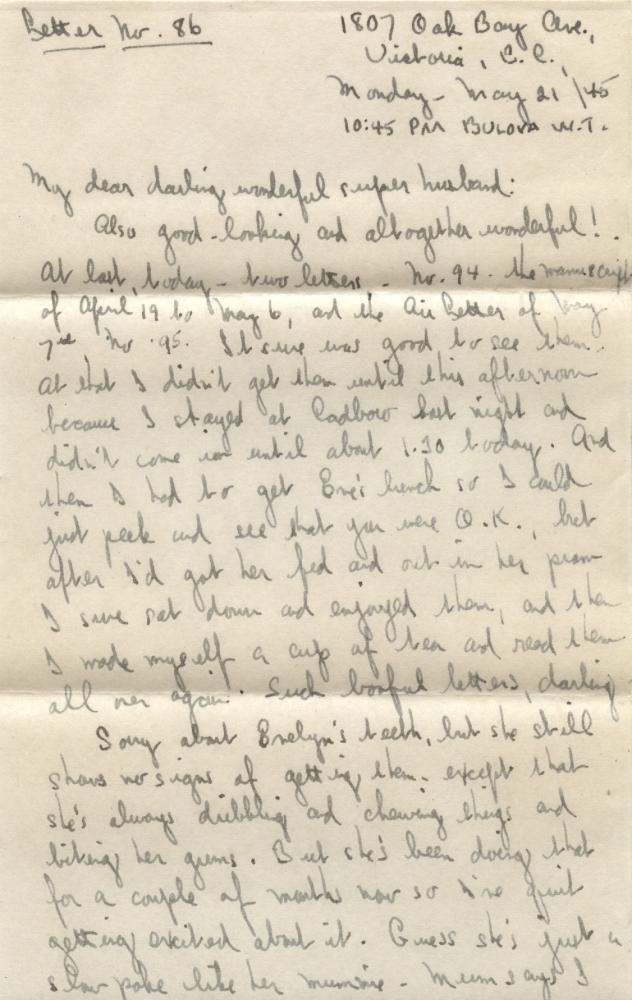 Letter No. 86
1807 Oak Bay Ave.,
Victoria, B.C.,
Monday - May 21/45
10:45 PM BULOVA W.T.
My dear darling wonderful super husband:
Also good-looking and altogether wonderful!
At last, today - two letters - No. 94 - the manuscript
of April 19 to May 6, and the Air Letter of May
7th No. 95. It sure was good to see them.
At that I didn't get them until this afternoon
because I stayed at Cadboro last night and
didn't come in until about 1.30 today. And
then I had to get Eve's lunch so I could
just peek and see that you were O.K., but
after I'd got her fed and out in her pram
I sure sat down and enjoyed them, and then
I made myself a cup of tea and read them
all over again. Such letters, darling
Sorry about Evelyn's teeth, but she still
shows no signs of getting them - except that
she's always dribbling and chewing things and
biting her gums. But she's been doing that
for a couple of months now so I've quit
getting excited about it. Guess she's just a
slow poke like her mummie - Mum says I